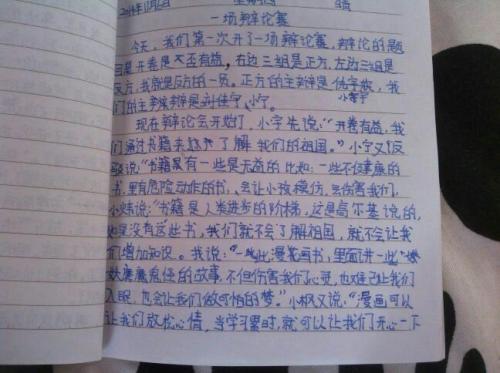 晴
一场辩论赛
今天，我们第一次开了一场辩论赛，辩论的题
目是开卷是否有益，右边三组是正方，左边三组是
反方，我就是反方的一员。正方的主辩是
小宇
们的主辩是刘佳宁，小宁。
现在辩论会开始了，小宇先说：“开卷有益，我
们通过书籍来了解我们的祖国。”小宁又反
驳说：“书籍是有一些是无益的比如：一些不健康的
书，里有危险动作的书，会让小孩模仿，会伤害我们。
说：“书籍是人类进步的阶梯，这是高尔基说的，
如果没有这些书，我们就不会了解祖国，就不会让我
们增加知识。我说：“一些漫画书，里面讲一些
妖魔鬼怪的故事，不但伤害我们心灵，也难已让我们
入眠，也会让我们做可怕的梦。”小枫又说：“漫画可以
让我们放松心情，当学习累时，就可以让我们开心一下